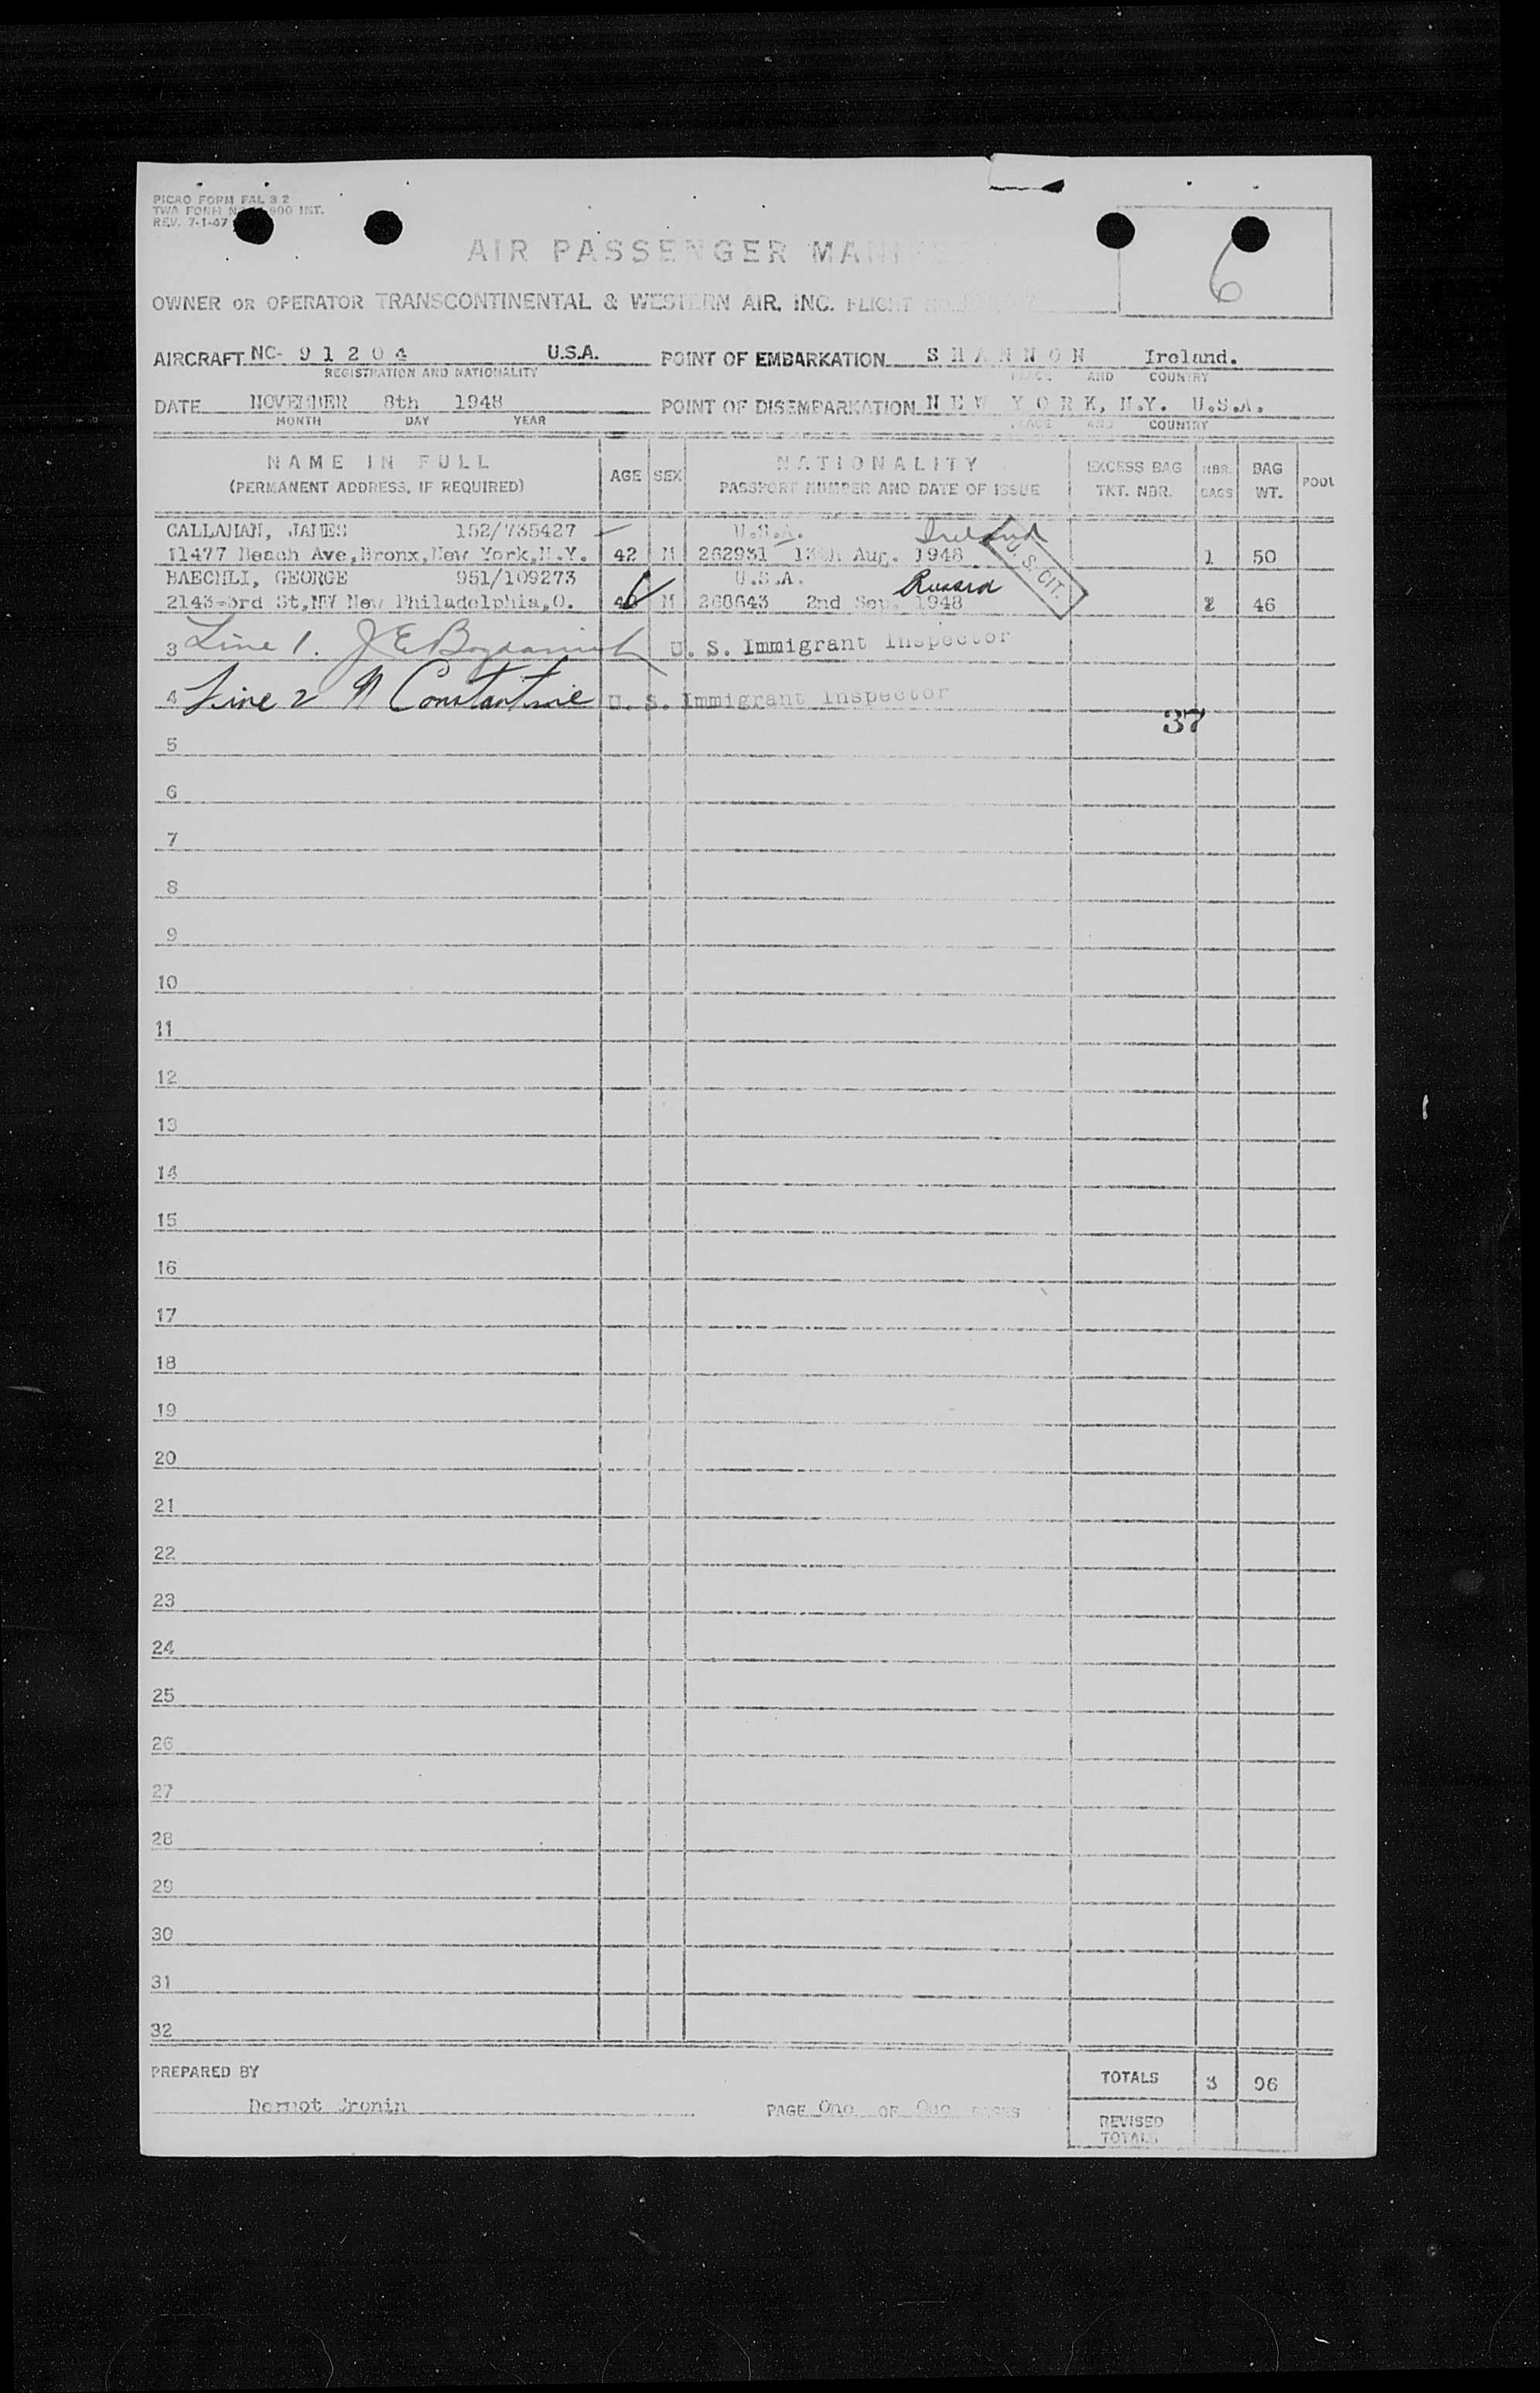 PICAO FORM FAL 3 2
TWA FORM 900 INT.
REV. 7-1-47
6
AIR PASSENGER
OWNER OR OPERATOR TRANSCONTINENTAL & WESTERN AIR, INC. FLIGHT
AIRCRAFT NC- 9 1 2 0 4 U.S.A. POINT OF EMBARKATION S H A N N O N Ireland.
REGISTRATION AND NATIONALITY PLACE AND COUNTRY
DATE NOVEMBER 8th 1948 POINT OF DISEMBARKATION N E W Y O R K, N.Y. U.S.A.
MONTH DAY YEAR PLACE AND COUNTRY
NAME IN FULL AGE SEX NATIONALITY EXCESS BAG NBR. BAG POOL
(PERMANENT ADDRESS, IF REQUIRED) PASSPORT NUMBER AND DATE OF ISSUE TKT. NBR. BAGS WT.
CALLAHAN, JAMES 152/735427 U.S.A. Ireland
11477 Beach Ave, Bronx, New York, N.Y. 42 M 262931 13th Aug. 1948 U.S. CIT. 1 50
BAECHLI, GEORGE 951/109273 U.S.A. Russia
2143-3rd St, NW New Philadelphia, O. M 268643 2nd Sep. 1948 2 46
3 Line 1. J E U. S. Immigrant Inspector
4 Line 2 N Constantine U. S. Immigrant Inspector
37
5
6
7
8
9
10
11
12
13
14
15
16
17
18
19
20
21
22
23
24
25
26
27
28
29
30
31
32
PREPARED BY TOTALS 3 96
Dermot Cronin PAGE One OF One PAGES
REVISED
TOTALS